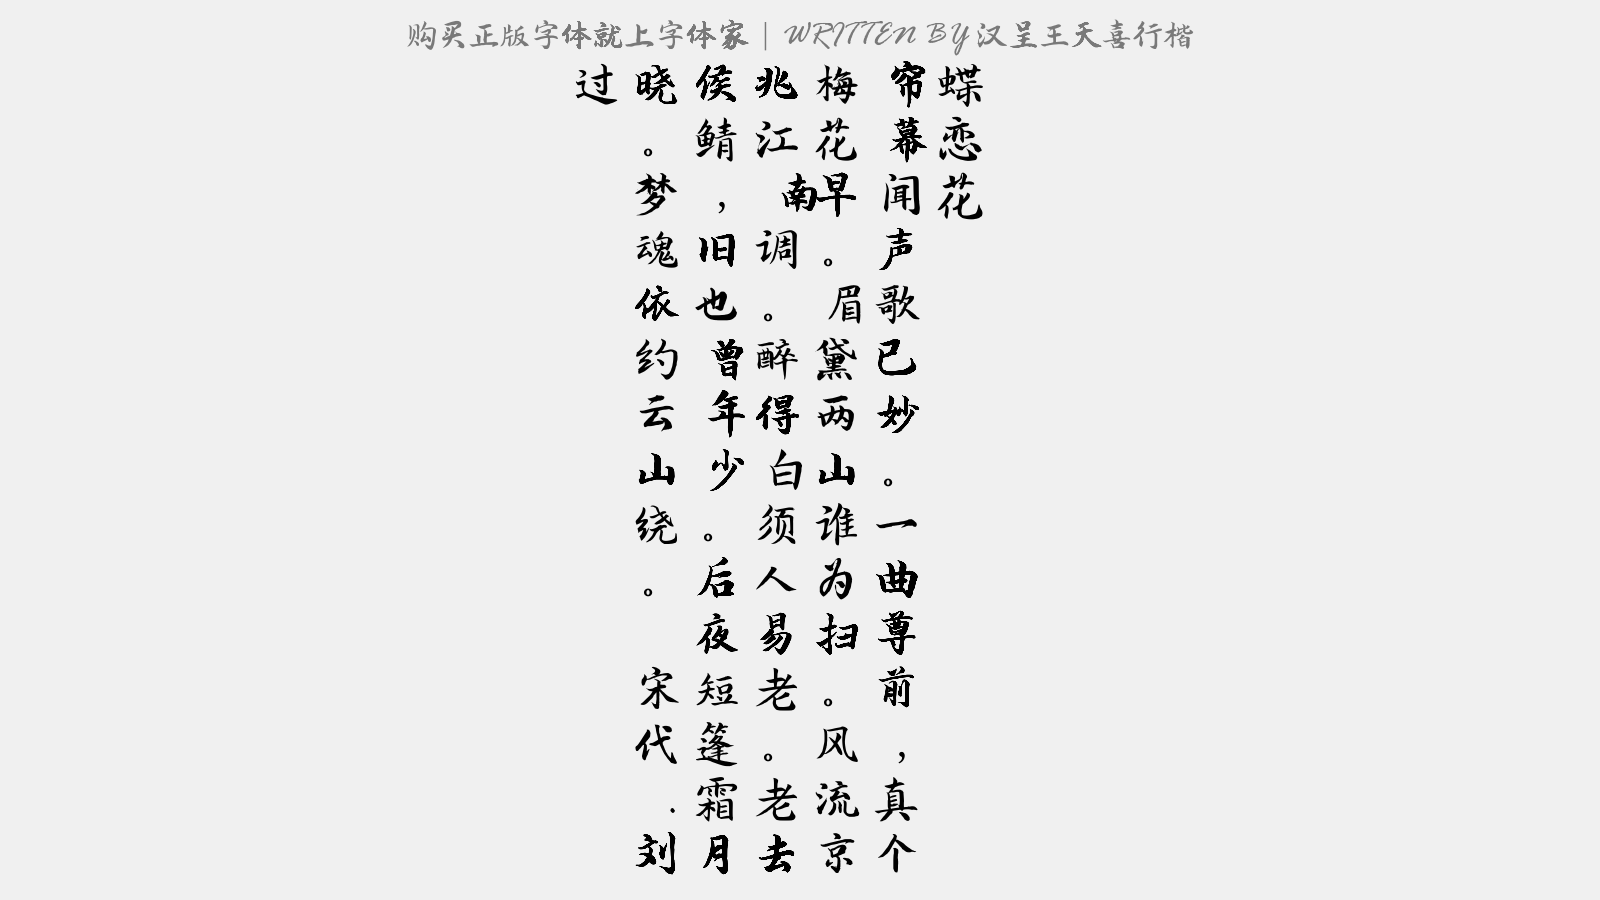 购买正版字体就上字体家｜WRITTEN BY 汉呈王天喜行楷
蝶恋花
帘幕闻声歌已妙。一曲尊前，真个
梅花早。眉黛两山谁为扫。风流京
兆江南调。醉得白须人易老。老去
侯鲭，旧也曾年少。后夜短篷霜月
晓。梦魂依约云山绕。 宋代.刘
过